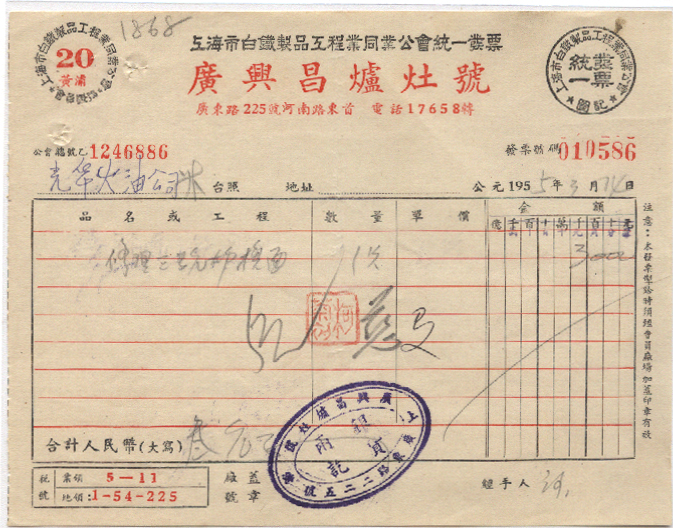 1868
上海市白鐵製品工程業同業公會統一發票
上海市白鐵製品工程業同業公會
20
黃浦
上海市白鐵製品工程業同業公會
統一發票
圖記
廣興昌爐灶號
廣東路225號河南路東首 電話17658轉
公會 號乙1246886
發票號碼010586
光華火油公司 台照 地址 公元1955年3月14日
品名或工程 數量 單價 金額
億千百十萬千百十元
修理 換面 1只 3000
合計人民幣(大寫) 叁元
廣興昌爐灶號
上海廣東路二二五號
税號 業領 5-11
地領:1-54-225
廠號 蓋章
經手人
注意:本發票製給時須經會員廠場加蓋印章有效